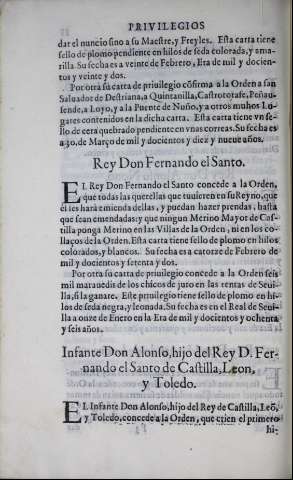 PRIVILEGIOS
dar el nuncio sino a su Maestre, y Freyles. Esta carta tiene
sello de plomo pendiente en hilos de seda colorada, y ama-
rilla. Su fecha es a veinte de Febrero, Era de mil y docien-
tos y veinte y dos.
Por otra su carta de priuilegio cōfirma a la Orden a san
Saluador de Destriana, a Quintanilla, Castrotorafe, Peñau-
sende, a Loyo, y a la Puente de Nuño, y a otros muchos Lu-
gares contenidos en la dicha carta. Esta carta tiene vn se-
llo de cera quebrado pendiente en vnas correas. Su fecha es
a 30. de Março de mil y docientos y diez y nueue años.
Rey Don Fernando el Santo.
EL Rey Don Fernando el Santo concede a la Orden,
que todas las querellas que tuuieren en su Reyno, que
el les hará emienda dellas, y puedan hazer prendas, hasta
que sean emendadas: y que ningun Merino Mayor de Cas-
tilla ponga Merino en las Villas de la Orden, ni en los co-
llaços de la Orden. Esta carta tiene sello de plomo en hilos
colorados, y blancos. Su fecha es a catorze de Febrero de
mil y docientos y setenta y dos.
Por otra su carta de priuilegio concede a la Orden seis
mil marauedis de los chicos de juro en las rentas de Seui-
lla, si la ganare. Este priuilegio tiene sello de plomo en hi-
los de seda negra, y leonada. Su fecha es en el Real de Seui-
lla a onze de Enero en la Era de mil y docientos y ochenta
y seis años.
Infante Don Alonso, hijo del Rey D. Fer-
nando el Santo de Castilla, Leon,
y Toledo.
EL Infante Don Alonso, hijo del Rey de Castilla, Leō,
y Toledo, concede a la Orden, que crien el primero
hi-